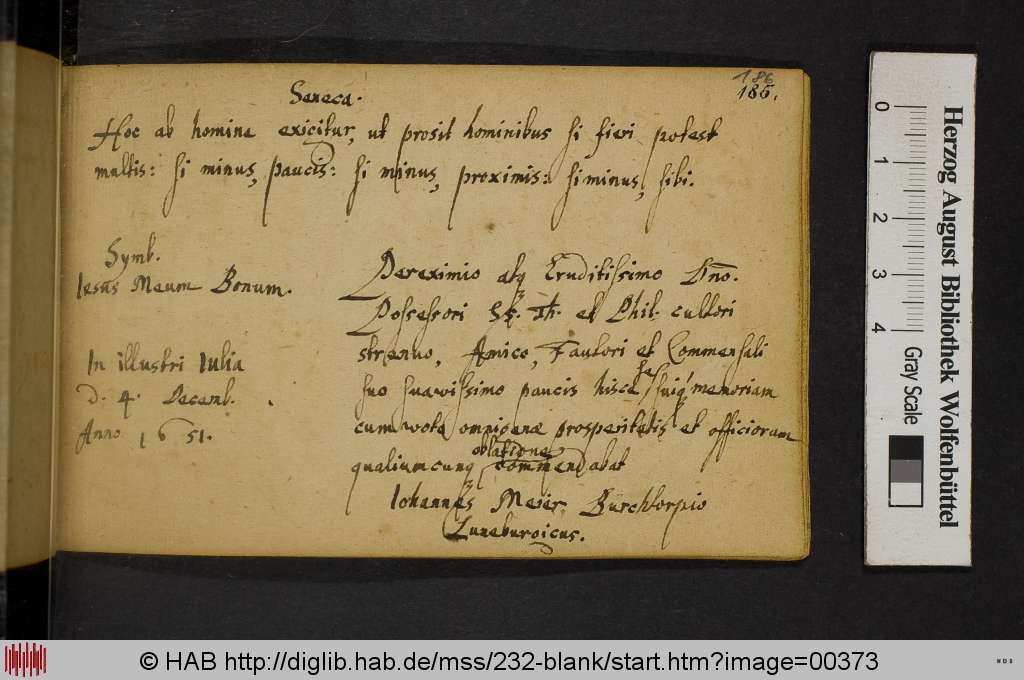 186
186.
Seneca.
Hoc ab homine exigitur, ut prosit hominibus si fieri potest
multis: si minus, paucis: si minus, proximis: si minus, sibi.
Symb.
Iesus Meum Bonum.
In illustri Iulia
d. 4. Decemb.
Anno 1651.
Pereximio atq Eruditissimo Dno.
Possessori SS. Th. et Phil. cultori
strenuo, Amico, Fautori et Commensali
suo suavissimo paucis hisce se, suiq memoriam
cum voto omnigenæ prosperitatis et officiorum
qualiumcunq oblatione commendabat
Iohannes Meier Burchtorpio
Luneburgicus.
0 1 2 3 4
Gray Scale
Herzog August Bibliothek Wolfenbüttel
© HAB http://diglib.hab.de/mss/232-blank/start.htm?image=00373